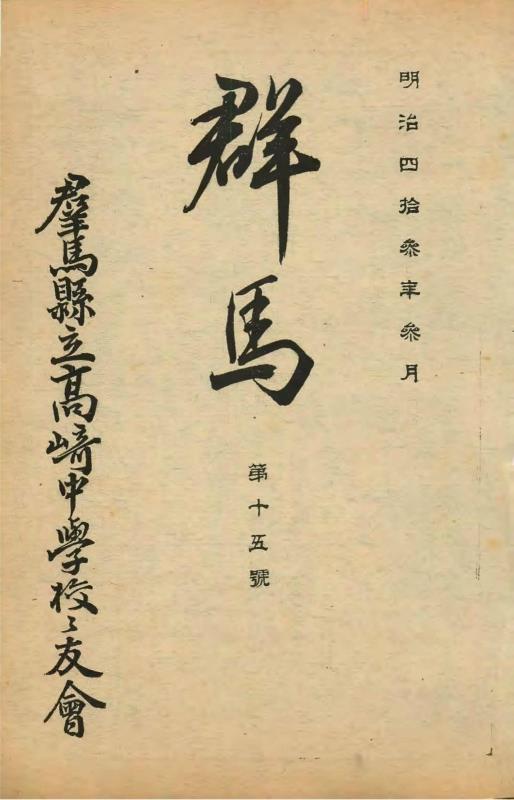 明治四拾参年参月
群馬
第十五號
羣馬縣立高崎中學校々友會